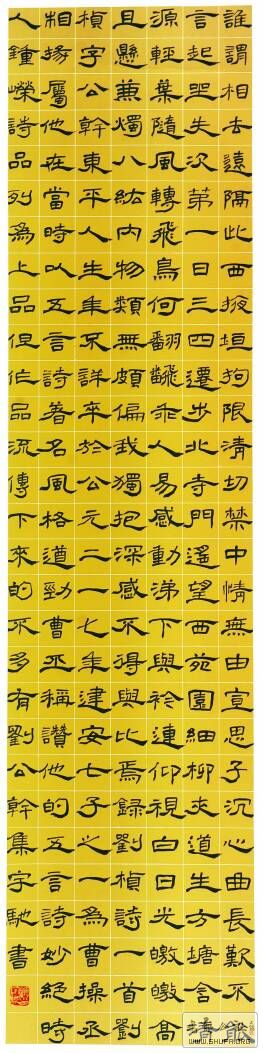 誰謂相去遠隔此西掖垣拘限清切禁中情無由宣思子沉心曲長歎不能
言起坐失次第一日三四遷步北寺門遙望西苑園細柳夾道生方塘含清
源輕葉隨風轉飛鳥何翻翻乖人易感動涕下與衿連仰視白日光皦皦高
且懸兼燭八紘內物類無頗偏我獨抱深感不得與比焉錄劉楨詩一首劉
楨字公幹東平人生年不詳卒於公元二一七年建安七子之一為曹操丞
相掾屬他在當時以五言詩著名風格遒勁曹丕稱讚他的五言詩妙絕時
人鍾嶸詩品列為上品但作品流傳下來的不多有劉公幹集字馳書